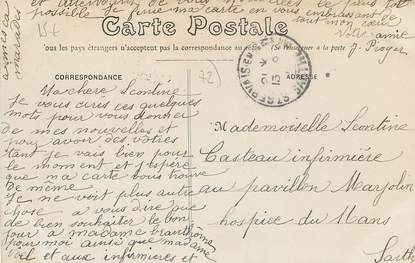 et
possible Je finie ma carte en vous embrassant de
tout mon cœur
votre amie
Carte Postale
Tous les pays étrangers n'acceptent pas la correspondance au recto (Se renseigner à la poste.
CORRESPONDANCE
ADRESSE
72
Ma chère Léontine
Je vous écris ces quelques
mots pour vous donner
de mes nouvelles et
pour avoir des vôtres
tant je vais bien pour
le moment et j'espère
que ma carte vous trouve
de même
Je ne voit plus autre
chose a vous dire que
de bien souhaiter le bon-
jour a madame
pour moi ainsi que madame
et aux infirmières et
Mademoiselle Léontine
Casteau infirmière
au pavillon Marjolin
hospice du Mans
Sarth